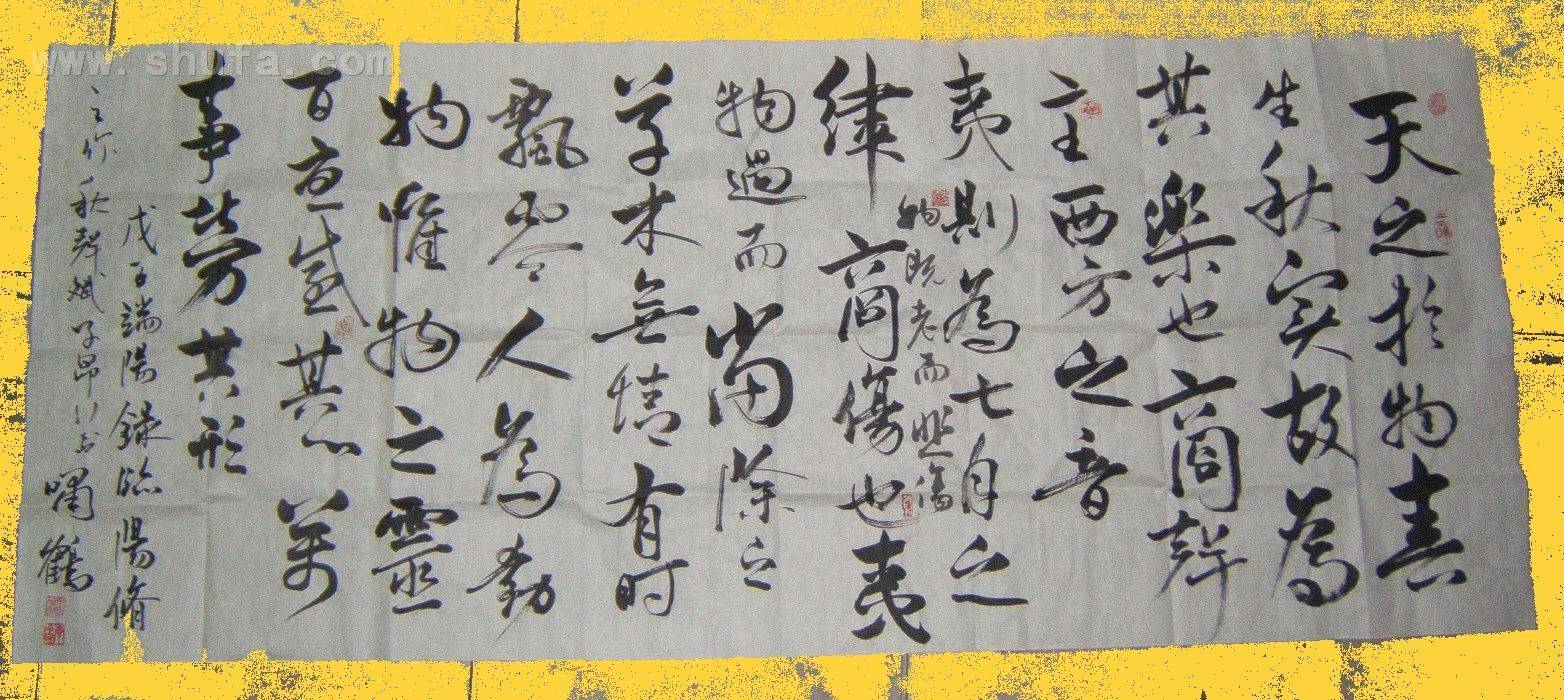 天之於物春
生秋实故為
其樂也商聲
主西方之音
夷則為七月之
物既老而悲傷
律商傷也夷
物過而當除之
草木無情有时
飄零人為動
物惟物之靈
百憂感其心萬
事勞其形
戊子端陽錄陽脩
之作秋聲賦子昂行书
嘯鶴
www.shufa.com